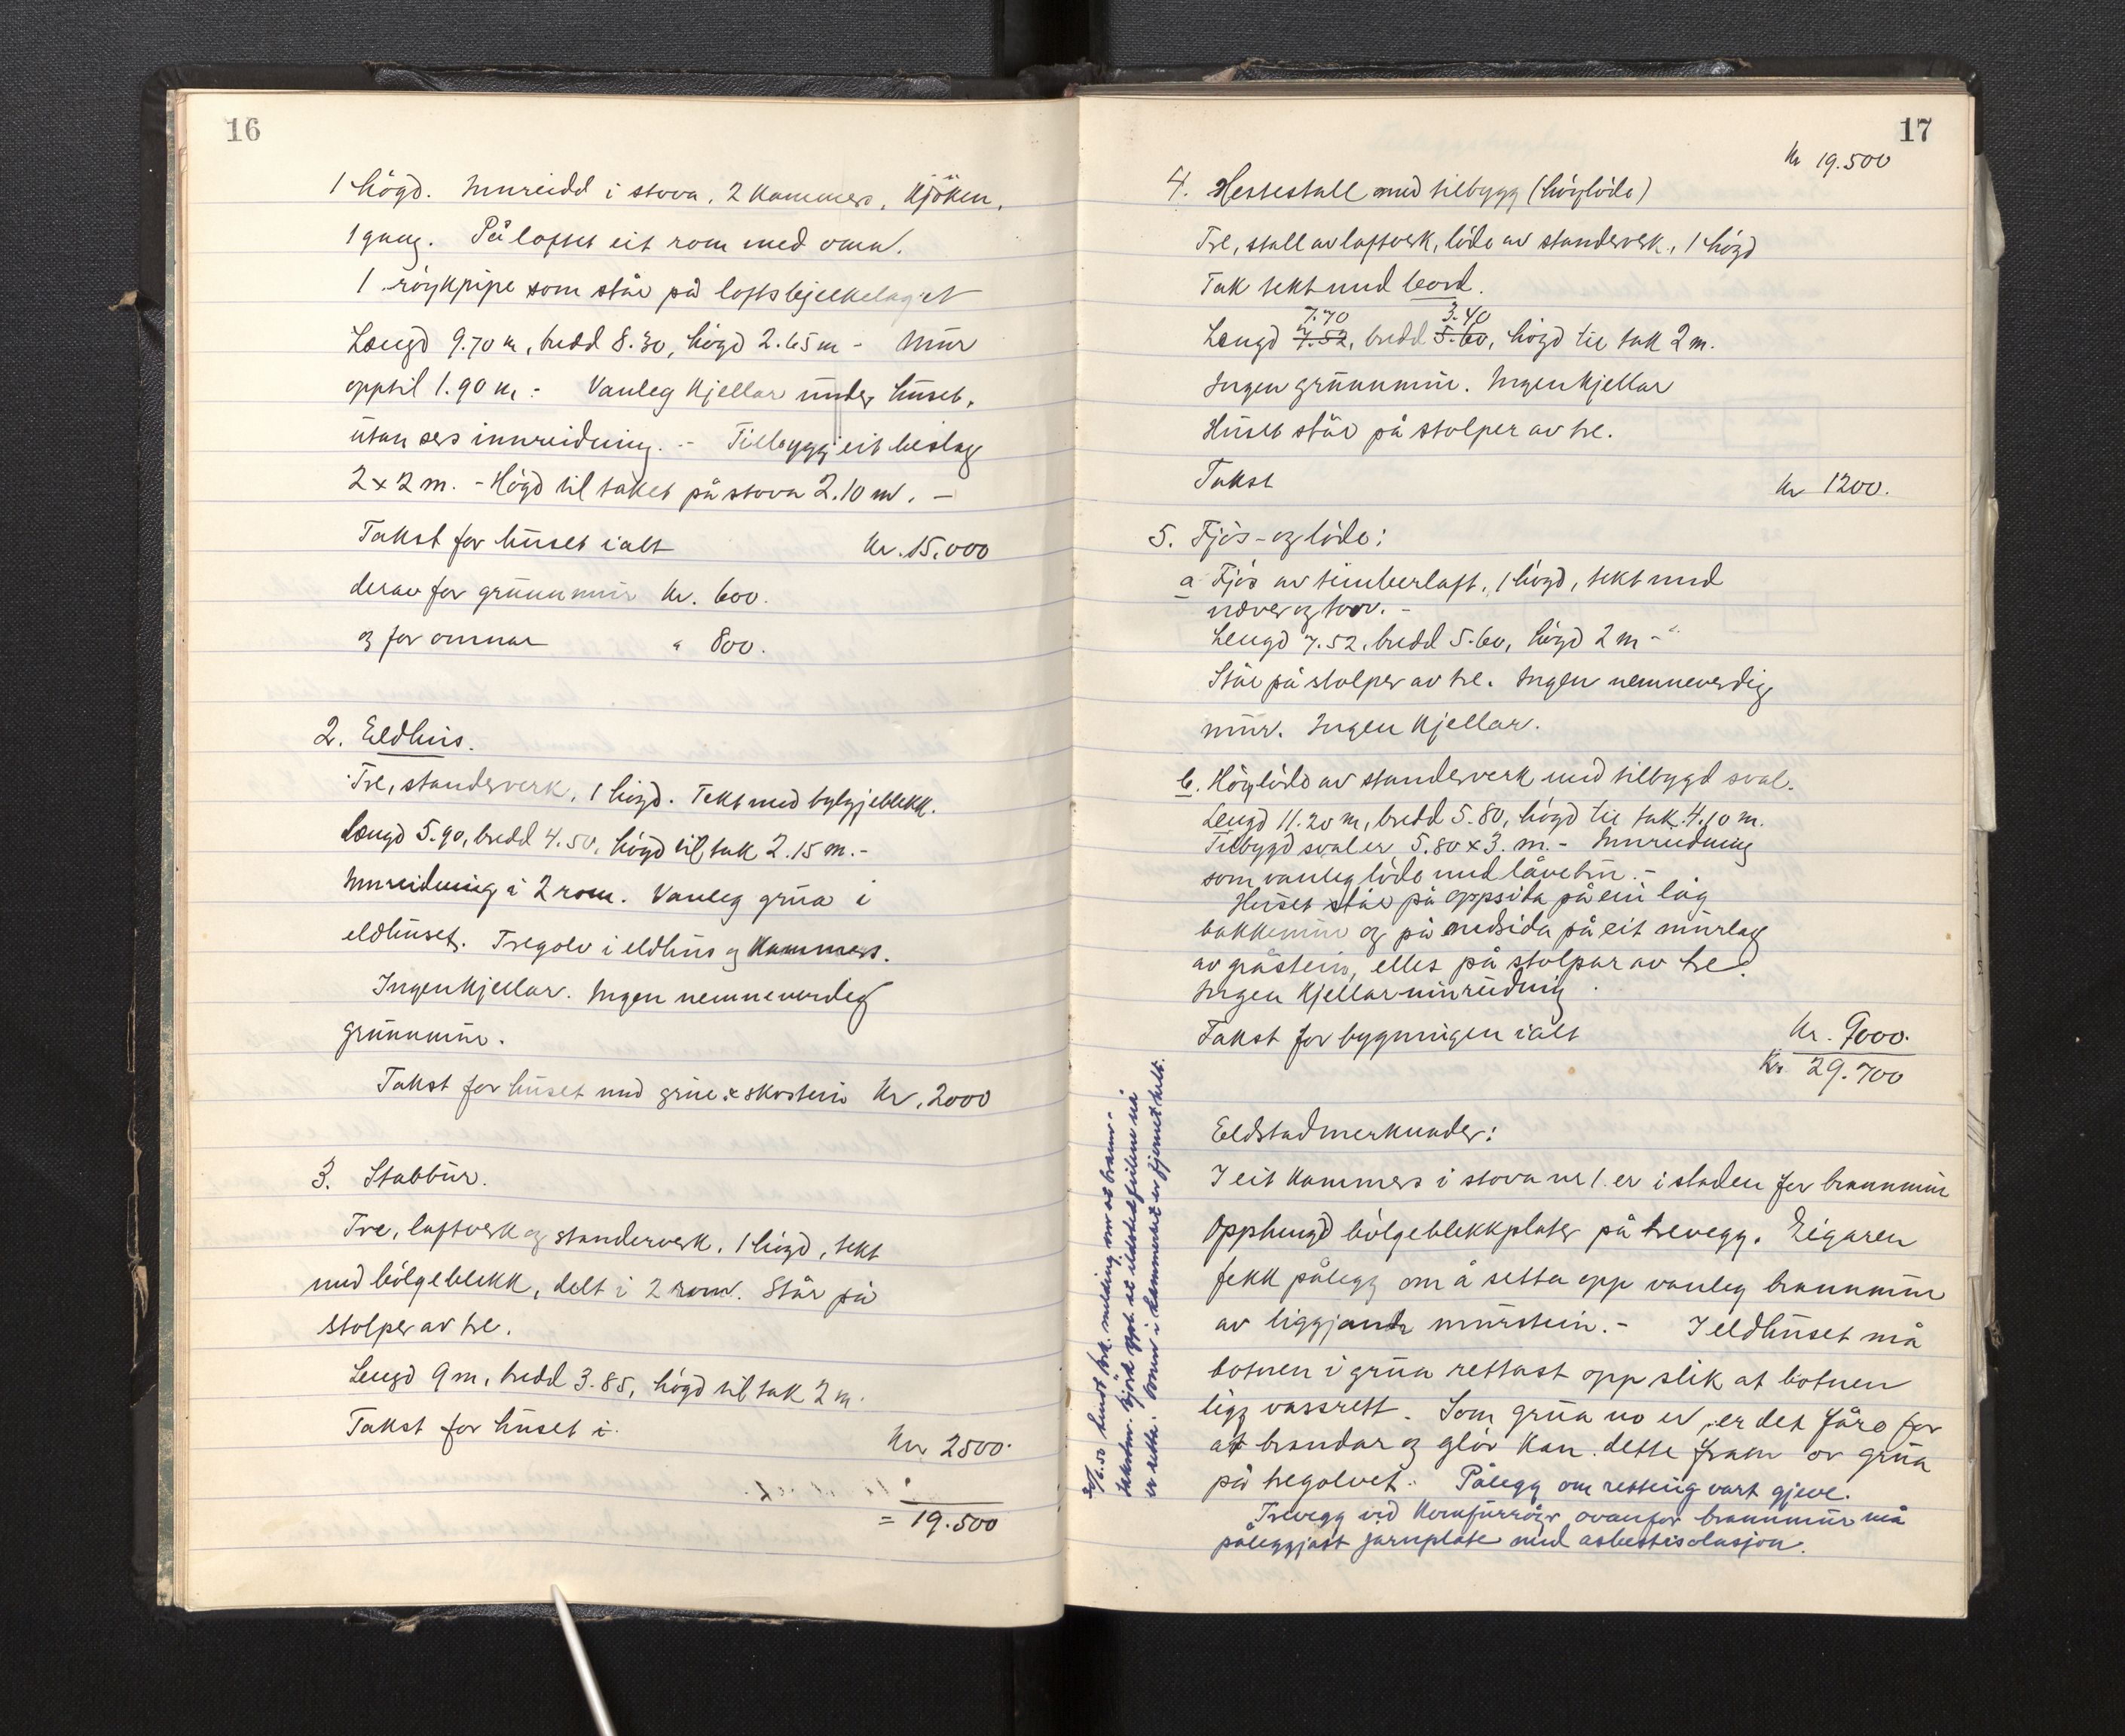 16
1 högd. Innreidd i stova, 2 kammers, kjöken,
1 gang. På loftet eit rom med omn.
1 röykpipe som står på loftsbjelkelaget
Lengd 9.70 m, bredd 8.30, högd 2.65 m - Mur
opptil 1.90 m. - Vanleg kjellar under huset,
utan sers innreidning. - Tilbygg eit bislag
2 x 2 m. - Högd til taket på stova 2.10 m. -
Takst for huset ialt Kr. 15.000
derav for grunnmur Kr. 600.
og for omnar " 800.
2. Eldhus.
Tre, standerverk, 1 högd. Tekt med bylgjeblekk.
Lengd 5.90, bredd 4.50, högd til tak 2.15 m. -
Innreidning i 2 rom. Vanleg grua i
eldhuset. Tregolv i eldhus og kammers.
Ingen kjellar. Ingen nemneverdig
grunnmur.
Takst for huset med grue & skorstein Kr. 2000
3. Stabbur.
Tre, laftverk og standerverk, 1 högd, tekt
med bölgeblekk, delt i 2 rom. Står på
stolper av tre.
Lengd 9 m, bredd 3.85, högd til tak 2 m.
Takst for huset i
Kr 2500.
= 19.500
17
Kr 19.500
4. Hestestall med tilbygg (höylöde)
Tre, stall av laftverk, löde av standerverk, 1 högd
Tak tekt med bord.
7.70 3.40
Lengd 7.52, bredd 5.60, högd til tak 2 m.
Ingen grunnmur. Ingen kjellar
Huset står på stolper av tre.
Takst Kr 1200.
5. Fjös- og löde:
a Fjös av timberlaft, 1 högd, tekt med
never og torv. -
Lengd 7.52, bredd 5.60, högd 2 m -
Står på stolper av tre. Ingen nemneverdig
mur. Ingen kjellar.
b. Höylöde av standerverk med tilbygd sval.
Lengd 11.20 m, bredd 5.80, högd til tak 4.10 m.
Tilbygd sval er 5.80 x 3. m. - Innreidning
som vanleg löde med låvebru. -
Huset står på oppsida på ein låg
bakkemur og på nedsida på eit murlag
av gråstein, elles på stolpar av tre.
Ingen kjellarinnreidnig
Takst for bygningen ialt Kr. 9000.
Kr 29.700
Eldstadmerknader:
I eit kammers i stova nr 1. er i staden for brannmur
opphengd bölgeblekkplater på trevegg. Eigaren
fekk pålegg om å setta opp vanleg brannmur
av liggjande murstein. - I eldhuset må
botnen i grua rettast opp slik at botnen
ligg vassrett. Som grua no er, er det fåre for
at brandar og glör kan dette fram or grua
på tregolvet. Pålegg om retting vart gjeve.
Trevegg ved komfurröyr ovanfor brannmur må
påleggjast jarnplate med asbestisolasjon.
20/6.50 hendt frå melding om at brann-
takstm. Björk
er retta. Omnen i kammerset er fjernet helt.